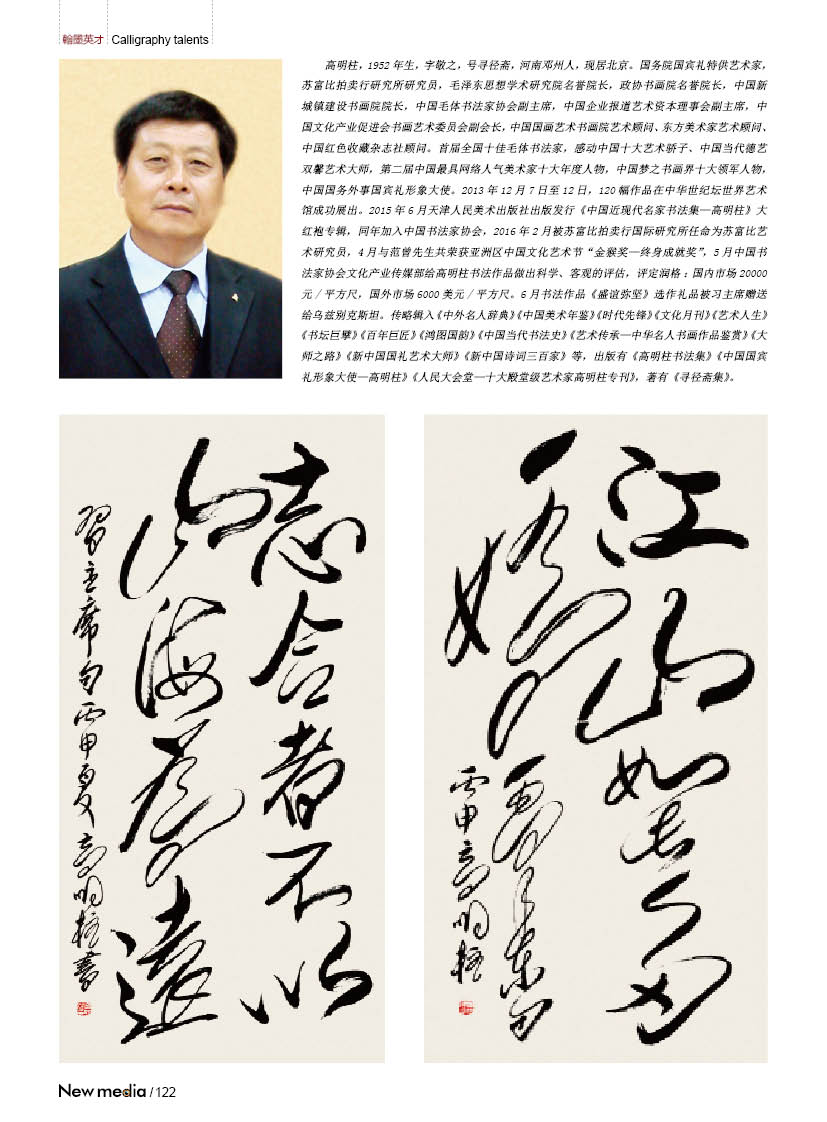 翰墨英才 Calligraphy talents
高明柱，1952年生，字敬之，号寻径斋，河南邓州人，现居北京。国务院国宾礼特供艺术家，
苏富比拍卖行研究所研究员，毛泽东思想学术研究院名誉院长，政协书画院名誉院长，中国新
城镇建设书画院院长，中国毛体书法家协会副主席，中国企业报道艺术资本理事会副主席，中
国文化产业促进会书画艺术委员会副会长，中国国画艺术书画院艺术顾问、东方美术家艺术顾问、
中国红色收藏杂志社顾问。首届全国十佳毛体书法家，感动中国十大艺术骄子、中国当代德艺
双馨艺术大师，第二届中国最具网络人气美术家十大年度人物，中国梦之书画界十大领军人物，
中国国务外事国宾礼形象大使。2013年12月7日至12日，120幅作品在中华世纪坛世界艺术
馆成功展出。2015年6月天津人民美术出版社出版发行《中国近现代名家书法集—高明柱》大
红袍专辑，同年加入中国书法家协会，2016年2月被苏富比拍卖行国际研究所任命为苏富比艺
术研究员，4月与范曾先生共荣获亚洲区中国文化艺术节“金猴奖—终身成就奖”，5月中国书
法家协会文化产业传媒部给高明柱书法作品做出科学、客观的评估，评定润格：国内市场20000
元／平方尺，国外市场6000美元／平方尺。6月书法作品《盛谊弥坚》选作礼品被习主席赠送
给乌兹别克斯坦。传略辑入《中外名人辞典》《中国美术年鉴》《时代先锋》《文化月刊》《艺术人生》
《书坛巨擘》《百年巨匠》《鸿图国韵》《中国当代书法史》《艺术传承—中华名人书画作品鉴赏》《大
师之路》《新中国国礼艺术大师》《新中国诗词三百家》等，出版有《高明柱书法集》《中国国宾
礼形象大使—高明柱》《人民大会堂—十大殿堂级艺术家高明柱专刊》，著有《寻径斋集》。
志合者不以
山海为遠
習主席句丙申夏高明柱書
江山如此多
娇
丙申高明柱
New media / 122